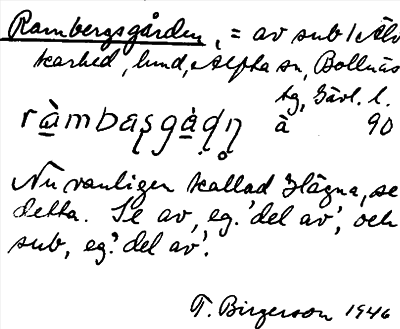 Rambergsgården, = av sub 1 Älv
karhed, lund, Alpha sn, Bollnäs
tg, Gävl. l.
ràmbaʂgàɖɳ̥ à 90
Nu vanligen kallad Hägna, se
detta. Se av, eg. 'del av', och
sub, eg. 'del av'.
T. Birgerson 1946